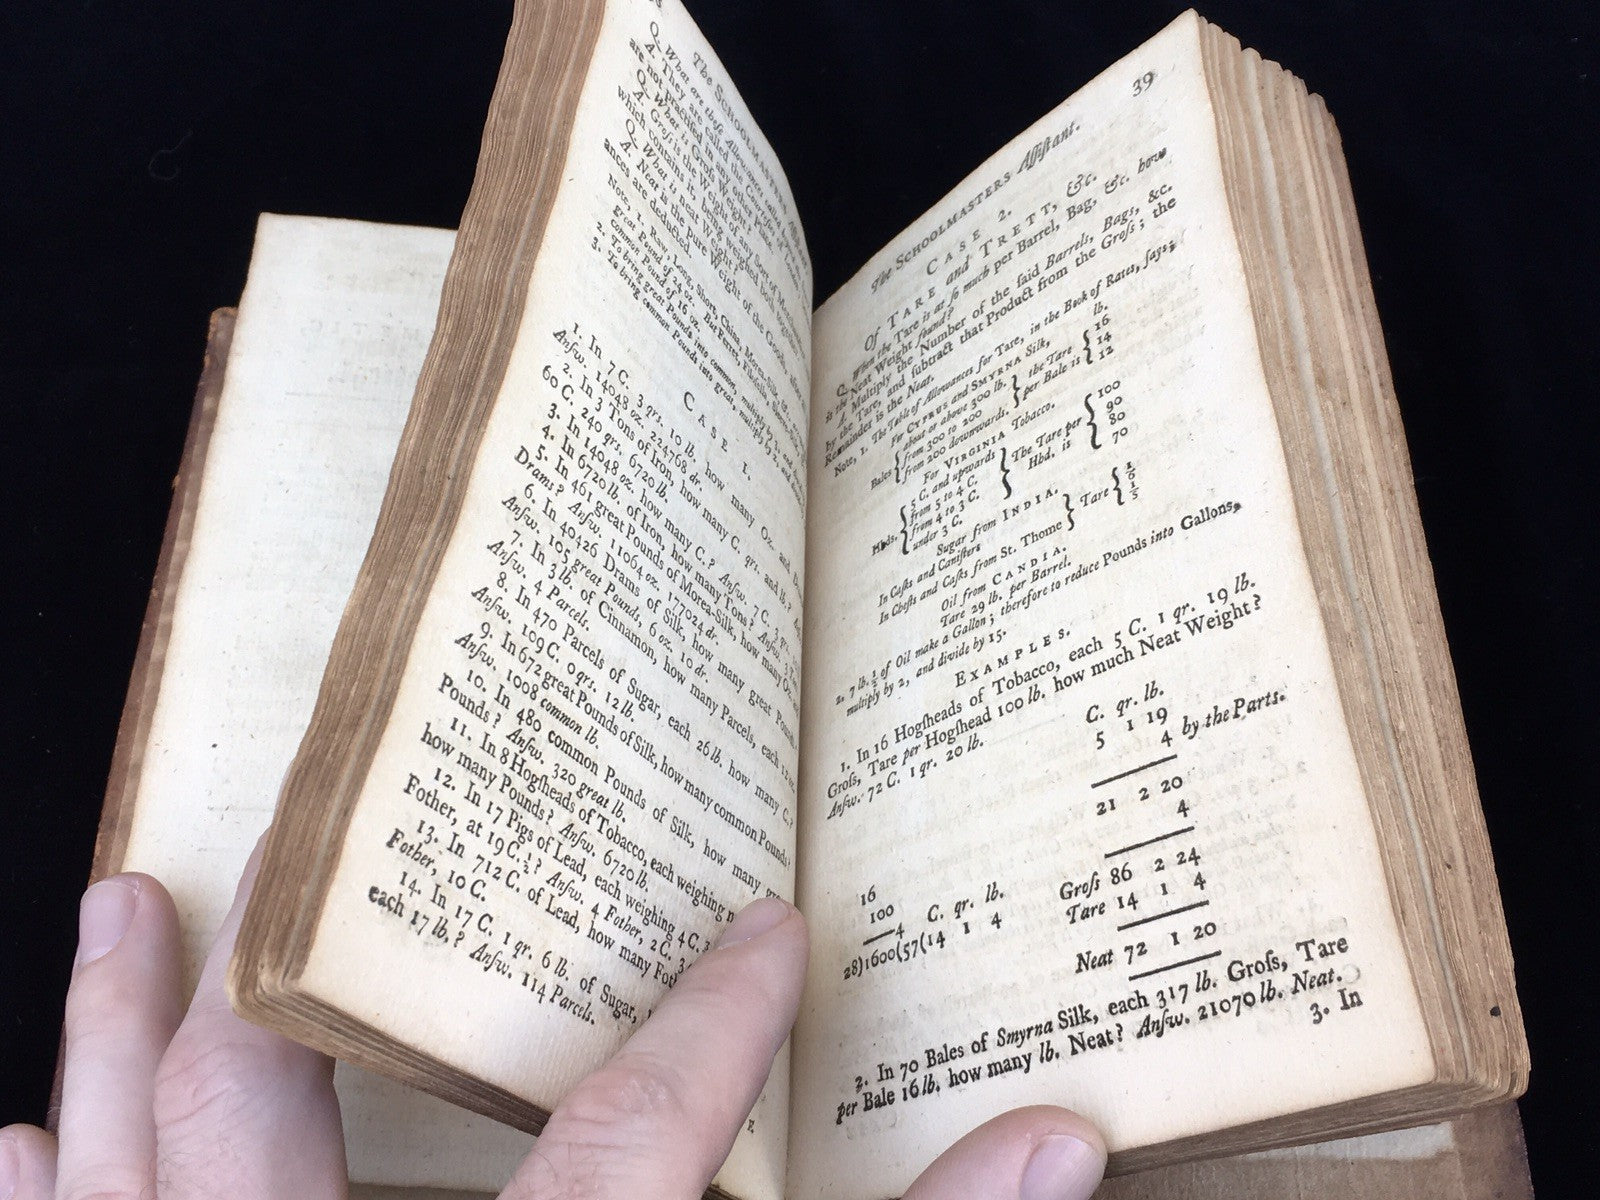 The SCHOOLMASTERS Assist
Q. What are these Allowances called?
A. They are called the Courtesies of
are not practised in any other Place.
Q. What is Gross Weight?
A. Gross is the Weight of any Sort of
which contains it, being weighed both together.
Q. What is neat Weight?
A. Neat is the pure Weight of the Goods,
ances are deducted.
Note, 1. Raw, Long, Short, China, Morea-Silk, &c.
great Pound of 24 oz. But Ferret,
common Pound of 16 oz.
2. To bring great Pounds into common, multiply by 3, and
3. To bring common Pounds into great, multiply by 2, and
CASE I.
1. In 7 C. 3 qrs. 10 lb. how many Oz. and
Answ. 14048 oz. 224768 dr.
2. In 3 Tons of Iron, how many C. qrs. and lb.?
60 C. 240 qrs. 6720 lb.
3. In 14048 oz. how many C.? Answ. 7 C. 3 qrs.
4. In 6720 lb. of Iron, how many Tons? Answ. 3
5. In 461 great Pounds of Morea-Silk, how many Oz. and
Drams? Answ. 11064 oz. 177024 dr.
6. In 40426 Drams of Silk, how many great Pounds
Answ. 105 great Pounds, 6 oz. 10 dr.
7. In 3 lb. of Cinnamon, how many Parcels, each 12 oz.
Answ. 4 Parcels.
8. In 470 Parcels of Sugar, each 26 lb. how many C.?
Answ. 109 C. 0 qrs. 12 lb.
9. In 672 great Pounds of Silk, how many common Pounds?
Answ. 1008 common lb.
10. In 480 common Pounds of Silk, how many
Pounds? Answ. 320 great lb.
11. In 8 Hogsheads of Tobacco, each weighing
how many Pounds? Answ. 6720 lb.
12. In 17 Pigs of Lead, each weighing 4 C. 3
Fother, at 19 C. ½? Answ. 4 Fother, 2 C. 3
13. In 712 C. of Lead, how many
Fother, 10 C.
14. In 17 C. 1 qr. 6 lb. of Sugar,
each 17 lb.? Answ. 114 Parcels.
The SCHOOLMASTERS Aſſiſtant. 39
CASE 2.
Of TARE and TRETT, &c.
Q. When the Tare is at ſo much per Barrel, Bag, &c. how
is the Neat Weight found?
A. Multiply the Number of the ſaid Barrels, Bags, &c.
by the Tare, and ſubtract that Product from the Groſs; the
Remainder is the Neat.
Note, 1. The Table of Allowances for Tare, in the Book of Rates, ſays;
For CYPRUS and SMYRNA Silk, lb.
Bales { about or above 300 lb. } the Tare { 16
from 300 to 200 per Bale is 14
from 200 downwards. 12
For VIRGINIA Tobacco.
Hhds. { 5 C. and upwards } The Tare per { 100
from 5 to 4 C. Hhd. is 90
from 4 to 3 C. 80
under 3 C. 70
Sugar from INDIA.
In Caſks and Caniſters } Tare { ⅙
In Cheſts and Caſks from St. Thome ⅕
Oil from CANDIA.
Tare 29 lb. per Barrel.
2. 7 lb. ½ of Oil make a Gallon; therefore to reduce Pounds into Gallons,
multiply by 2, and divide by 15.
EXAMPLES.
1. In 16 Hogſheads of Tobacco, each 5 C. 1 qr. 19 lb.
Groſs, Tare per Hogſhead 100 lb. how much Neat Weight?
Anſw. 72 C. 1 qr. 20 lb.
C. qr. lb.
5 1 19
4 by the Parts.
21 2 20
4
16
100
4 C. qr. lb.
28)1600(57(14 1 4
Groſs 86 2 24
Tare 14 1 4
Neat 72 1 20
2. In 70 Bales of Smyrna Silk, each 317 lb. Groſs, Tare
per Bale 16 lb. how many lb. Neat? Anſw. 21070 lb. Neat.
3. In